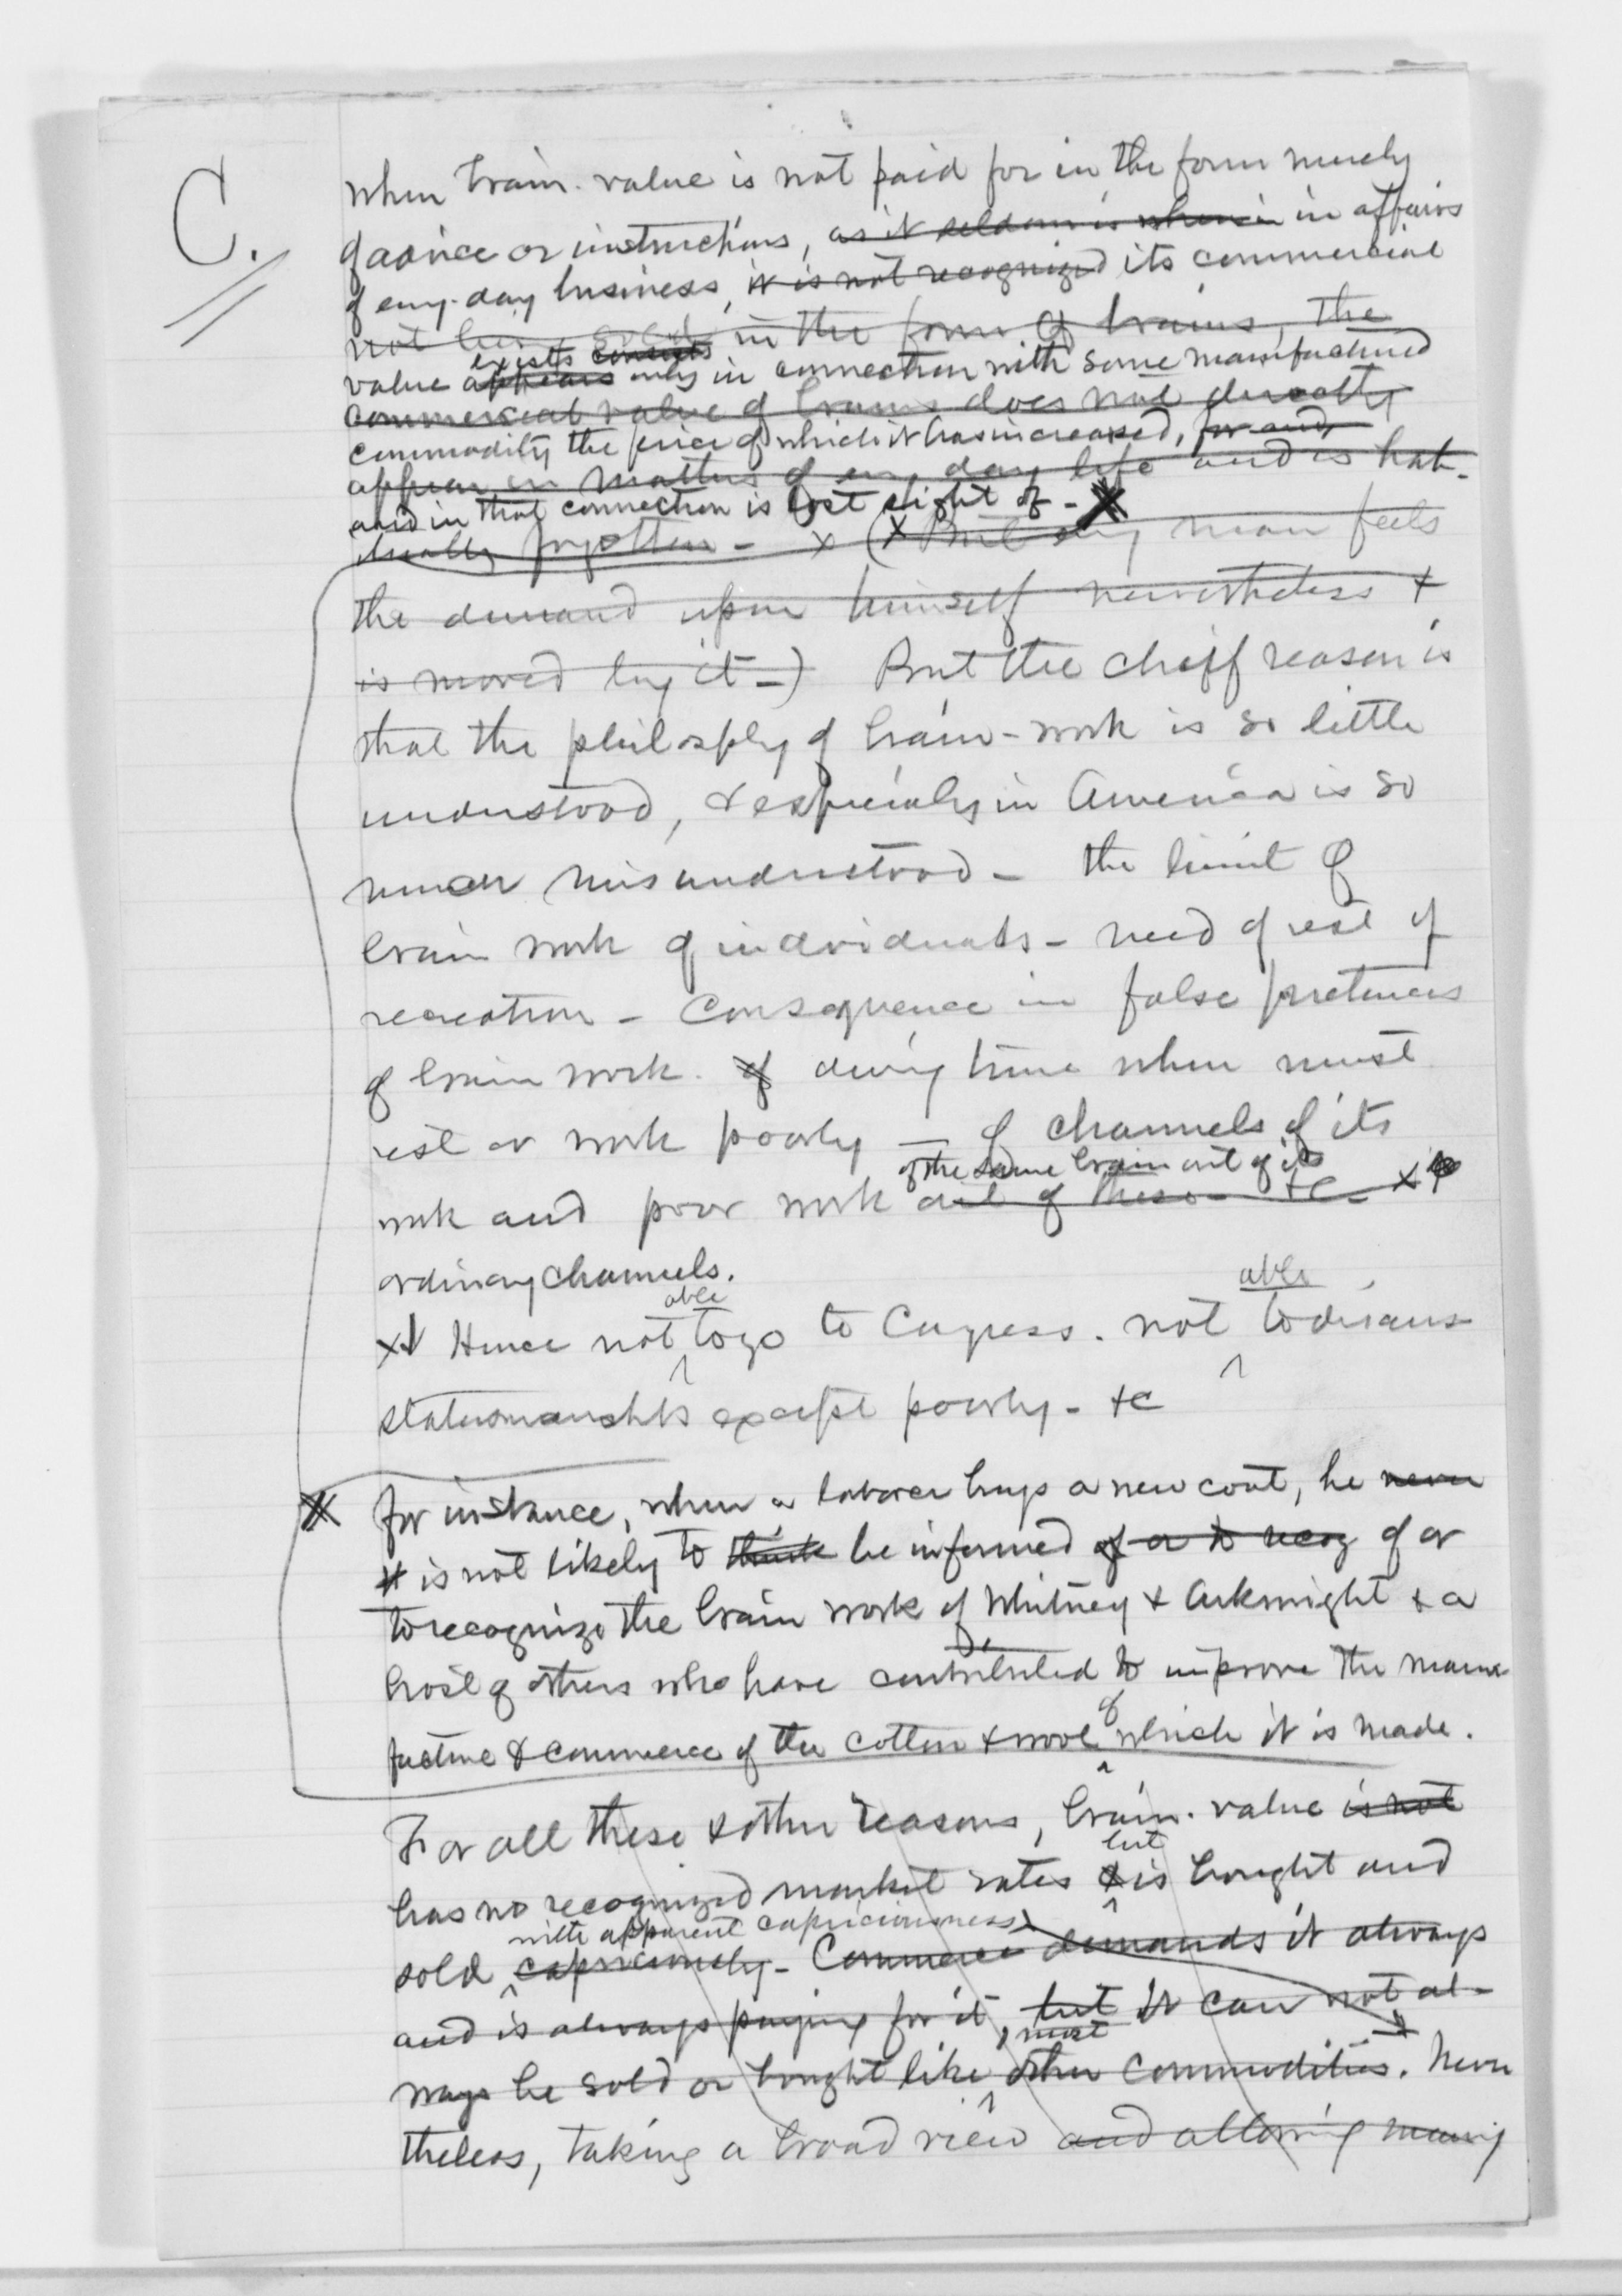 C.
When brain-value is not paid for in the form merely
of advice or instructions, as it seldom is when in in affairs
of every-day business, it is not recognized its commercial
not in the form of brains, the
exists consists
value appears only in connection with some manufactured
commercial value of brains does not directly
commodity the price of which it has increased, for and,
appear in matters of every day life and is hab-
and in that connection is lost slight of - X
itually forgotten - x (x But every man feels
the demand upon himself nevertheless &
is moved by it -) But the chieff reason is
that the philosphy of brain-work is so little
understood, & especially in America is so
much misunderstood - the limit of
brain work of individuals - need of rest of
recreation - Consequence in false pretences
of brain work. of during time when must
rest or work poorly — of channels of its
of the same brain out of its
work and poor work out of these - &c - x
ordinary channels.
able able
x Hence not to go to Congress. not to discuss
statesmanship except poorly - &c
X for instance, when a laborer buys a new coat, he never
it is not likely to think be informed of or to recog of or
to recognize the brain work of Whitney & Arkwright & a
host of others who have contributed to improve the manu-
of
facture & commerce of the cotton & wool which it is made.
For all these & other reasons, brain-value is not
but
has no recognized market rates & is bought and
with apparent capriciousness
sold capriciously - Commerce demands it always
and is always paying for it, but it can not al-
most
ways be sold or bought like other commodities. Never
theless, taking a broad view and allowing many